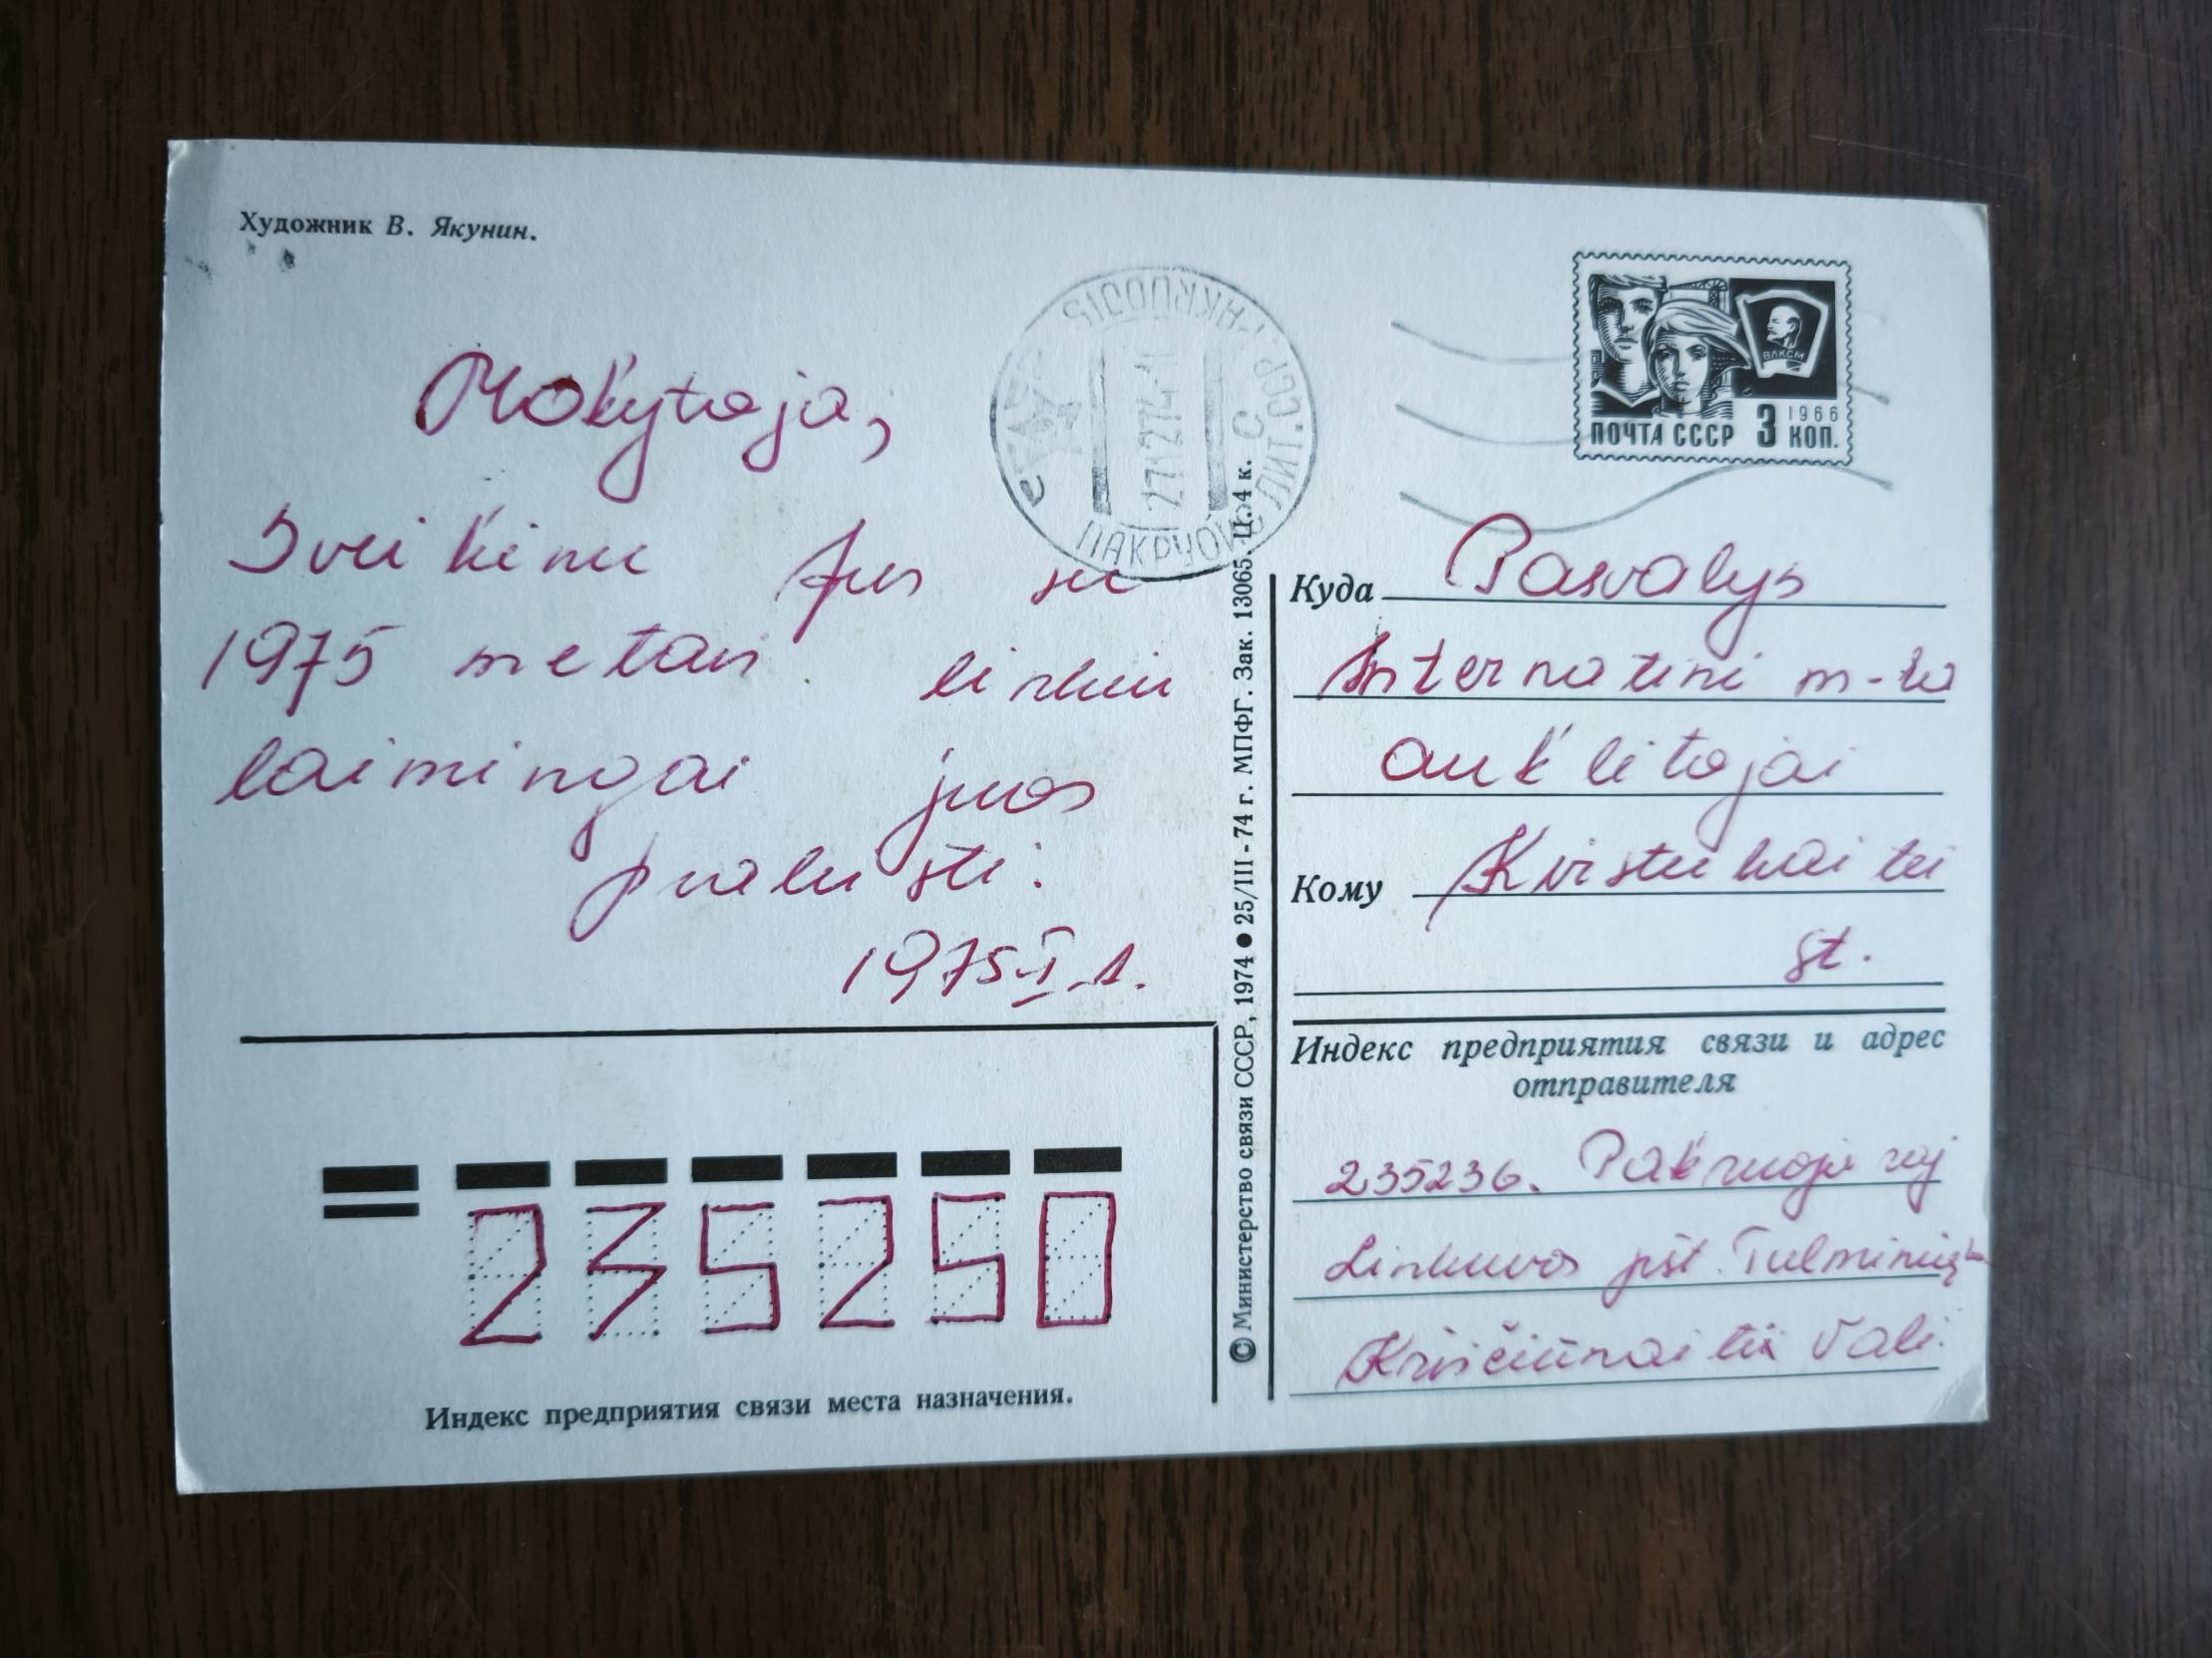 Художник В. Якунин.
Mokytoja,
Sveikinu Jus su
1975 metais linkiu
laimingai juos
praleisti.
1975 I 1.
PAKRUOJIS
271274-1
ПАКРУОЙС ЛИТ.ССР
ВЛКСМ
1966
ПОЧТА СССР 3 КОП.
Куда Pasvalys
Internatinė m-la
auklėtojai
Кому Kirstukaitei
St.
Индекс предприятия связи и адрес
отправителя
235236. Pakruojo raj
Linkuvos pšt.
Kriščiūnaitė Valė.
235250
Индекс предприятия связи места назначения.
© Министерство связи СССР, 1974 ● 25/III - 74 г. МПФГ. Зак. 13065. Ц. 4 к.